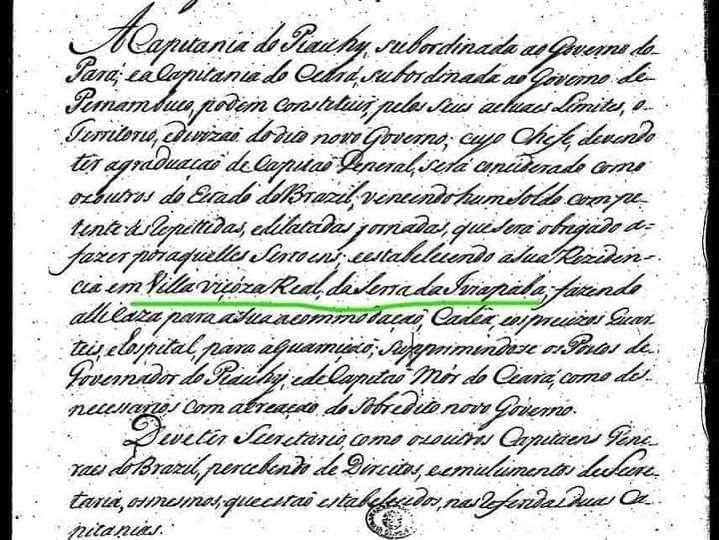 A Capitania do Piauhy, subordinada ao Governo do
Pará; e a Capitania do Ceará, subordinada ao Governo de
Pernambuco, podem constituir, pelos seus actuaes Limites, o
Territorio, e divizaõ do dito novo Governo; cujo Chefe, devendo
ter a graduacaõ de Capitaõ General, será considerado como
os outros do Estado do Brazil, vencendo hum Soldo compe-
tente ás repettidas, e dilatadas jornadas, que será obrigado a
fazer por aquelles Serroens; e estabelecendo a sua Reziden-
cia em Villa viçóza Real, da Serra da Ivapaba; fazendo
alli caza para a sua acommodaçaõ, Cadêa, e os precizos Quar-
teis e Ospital, para a Guarniçaõ; Supprimindose os Postos de
Governador do Piauhy, e de Capitaõ Mór do Ceará, como des-
necessarios com a creaçaõ do sobredito novo Governo.
Deve tèr Secretario, como os outros Capitaens Gene-
raes do Brazil, percebendo de Direitos, e emulumentos de Secre-
taria, os mesmos, que estaõ estabelecidos, nas referidas duas Ca-
pitanias.